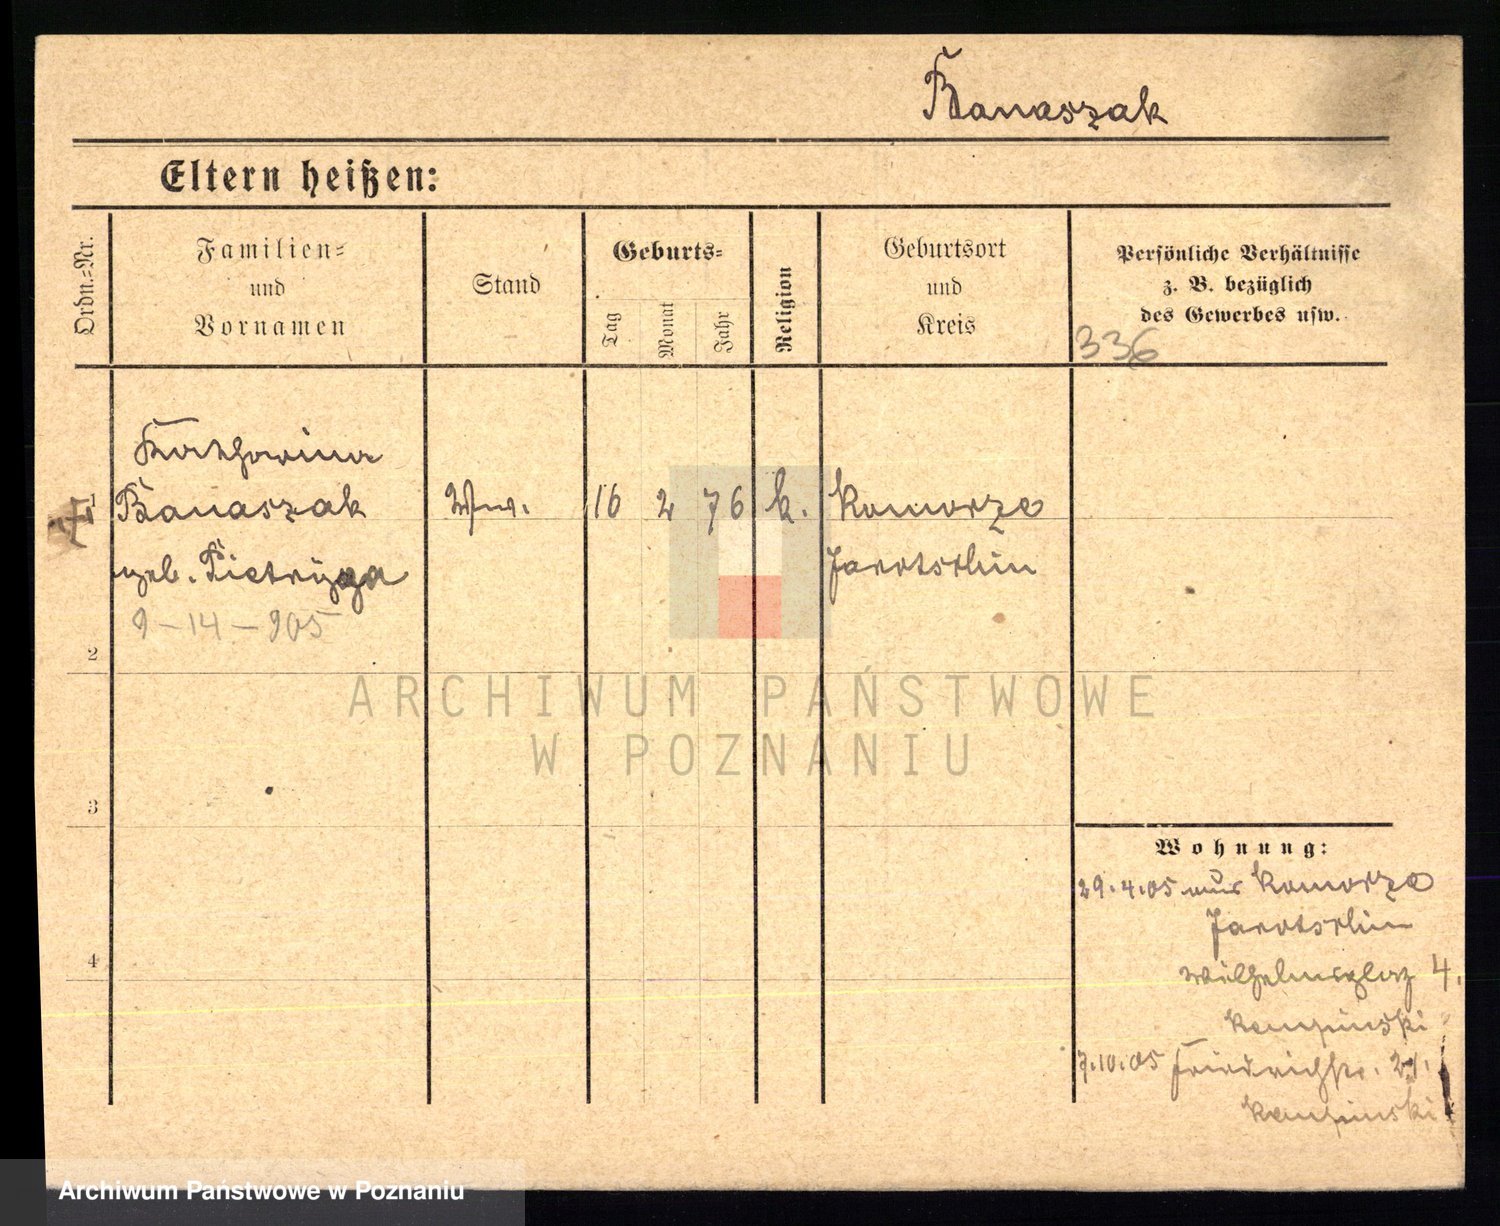 Banaszak
Eltern heißen:
Ordn.-Nr.
Familien-
und
Vornamen
Stand
Geburts-
Tag
Monat
Jahr
Religion
Geburtsort
und
Kreis
Persönliche Verhältnisse
z. B. bezüglich
des Gewerbes usw.
336
Katharina
1 Banaszak Ww. 16 2 76 k. Komorze
geb. Pietryga Jarotschin
9-14-905
2
ARCHIWUM PAŃSTWOWE
W POZNANIU
3
Wohnung:
29.4.05 aus Komorze
Jarotschin
4
Wilhelmsplatz 4.
Kempinski
7.10.05 Friedrichstr. 21.
Kempinski
Archiwum Państwowe w Poznaniu